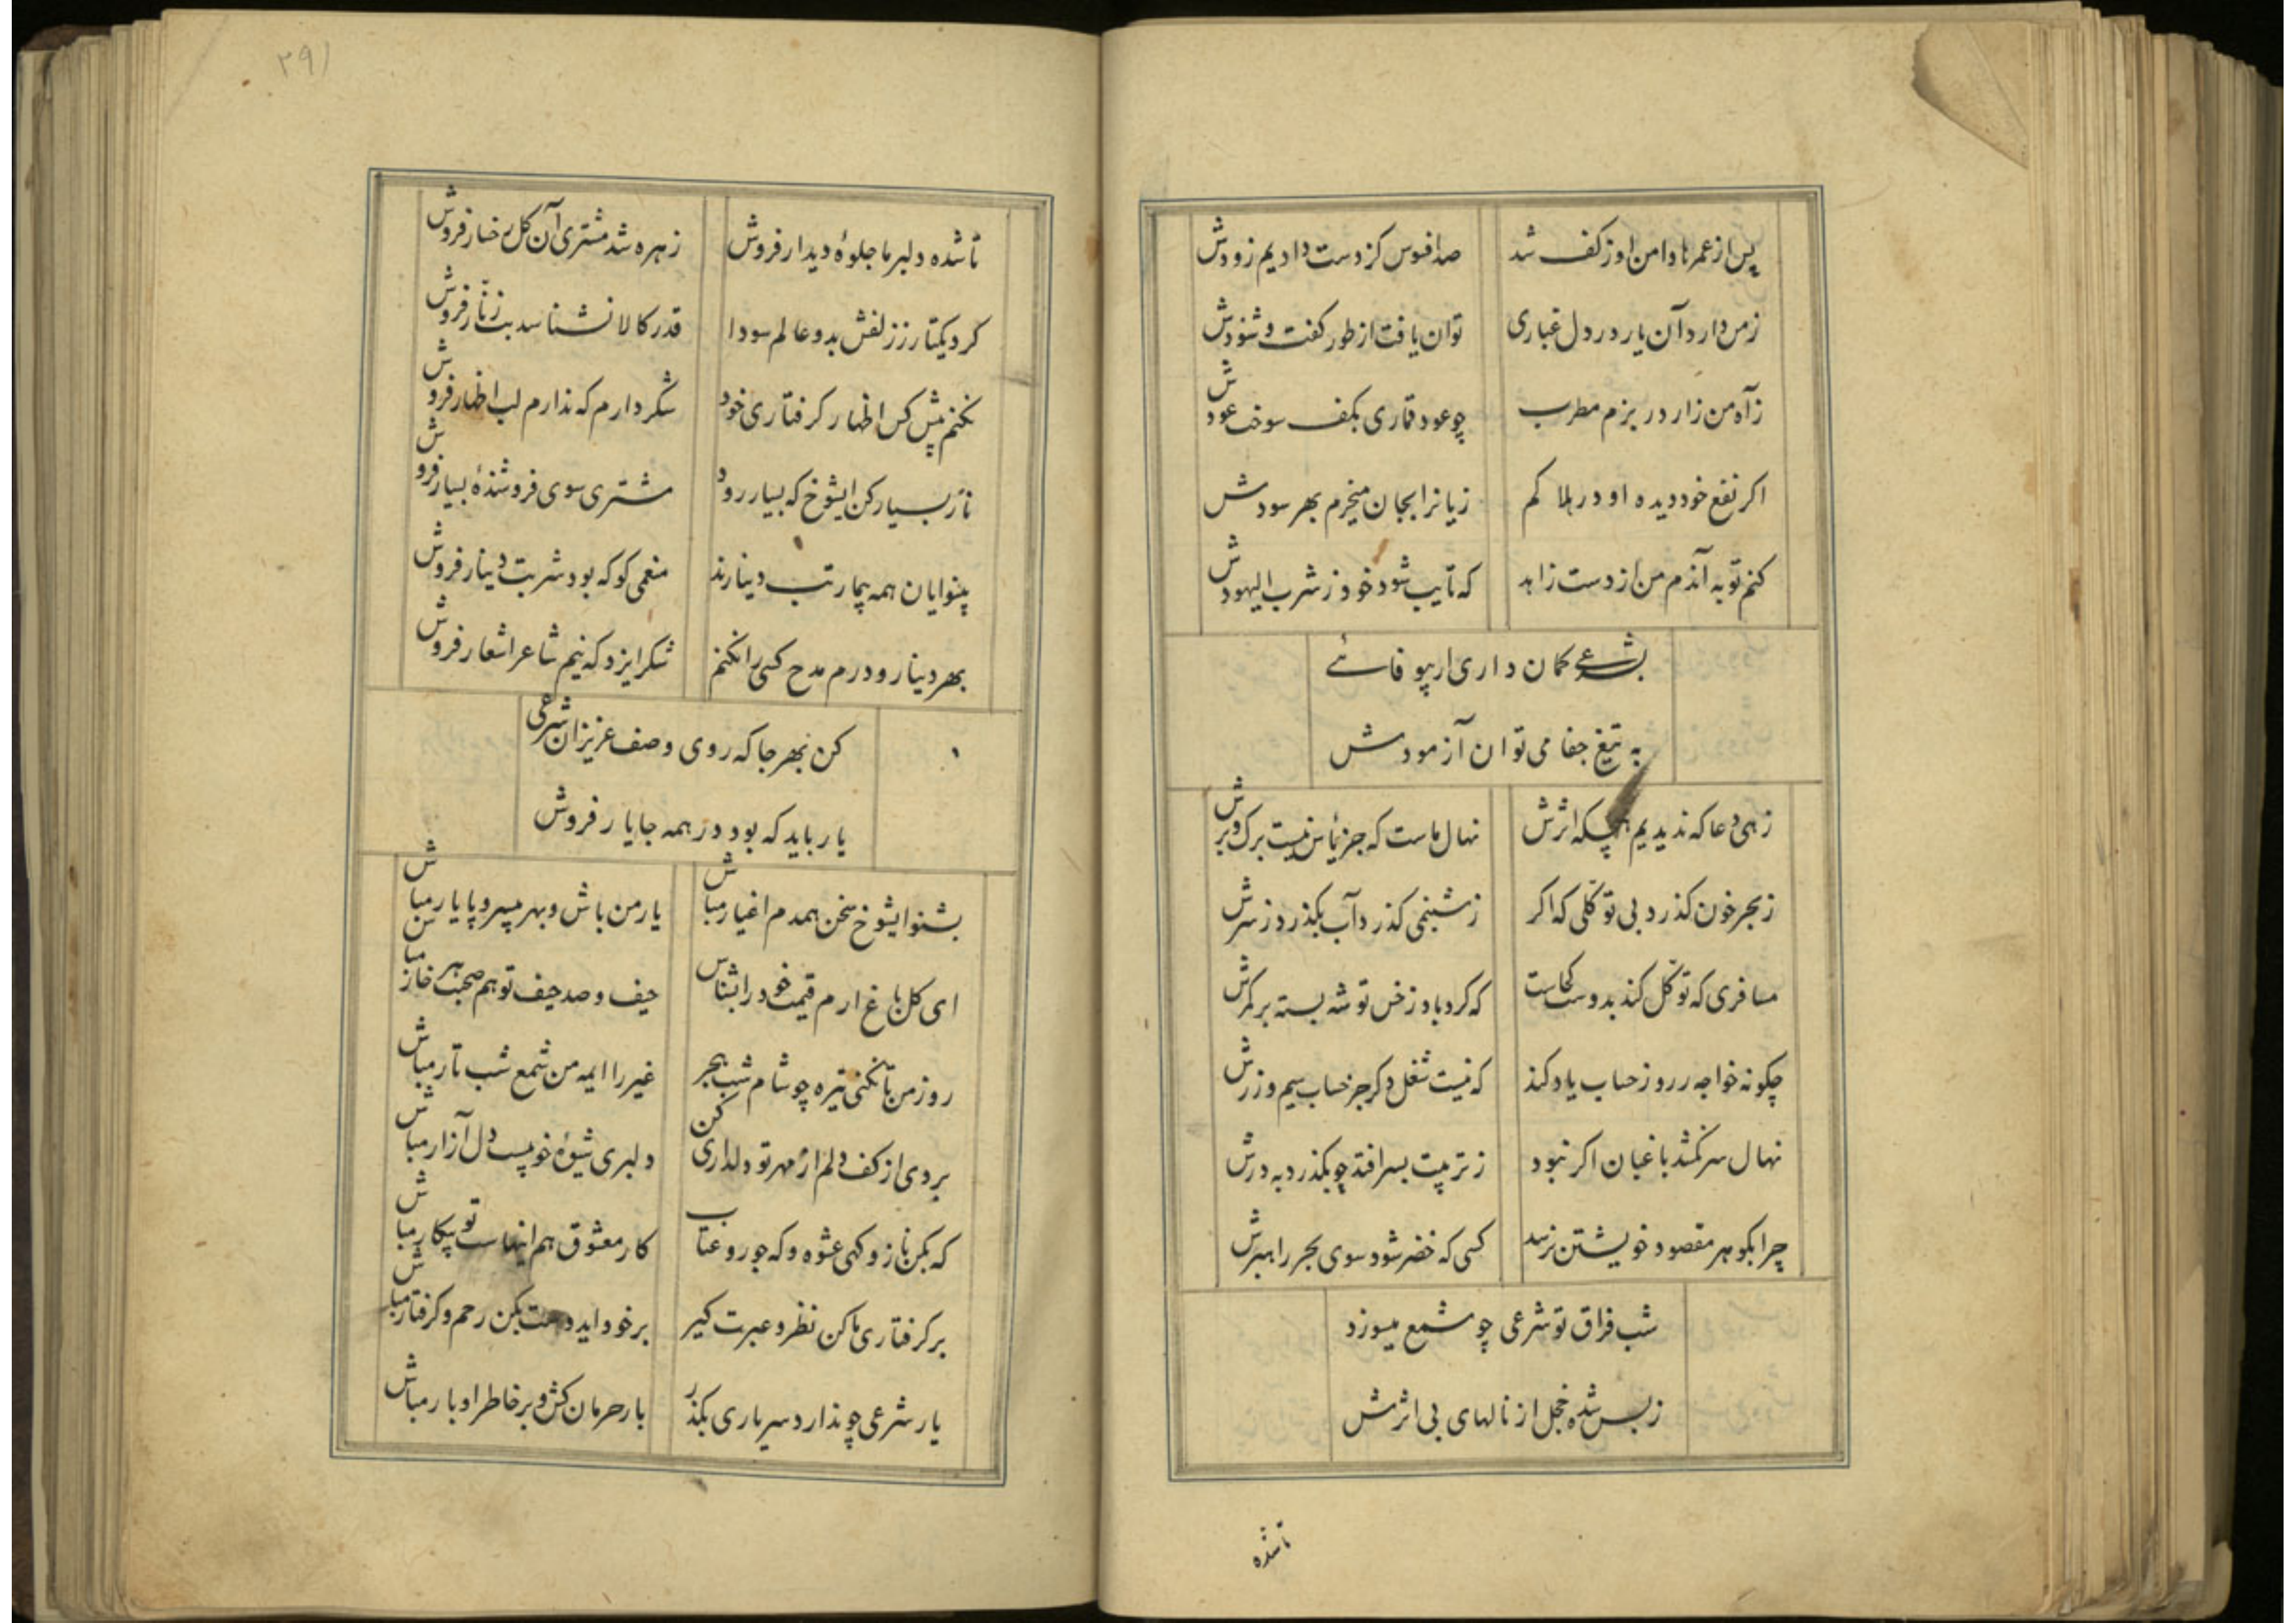 پس از عمرها دامن او ز کف شد صد افسوس کز دست دادیم زودش
ز من دارد آن یار در دل غباری توان یافت از طور کفت و شنودش
ز آه من زار در بزم مطرب چو عود قماری بکف سوخت عودش
اکر نفع خود دیده او در بلا کم زیانرا بجان میخرم بهر سودش
کنم توبه آندم من از دست زاهد که تایب شود خود ز شرب الیهودش
بشرعی کمان داری ار بیوفائے
به تیغ جفا می توان آزمودش
زهی دعا که ندیدیم هیچکه اثرش نهال ماست که جز یأس نیست برک و برش
ز بحر خون کذرد بی توکلی که اکر ز شبنمی کذرد آب بکذرد ز سرش
مسافری که توکل کند بدوست کجاست که کردباد ز خس توشه بسته بر کمرش
چکونه خواجه ز روز حساب یاد کند که نیست شغل دکر جز حساب سیم و زرش
نهال سرنکشد باغبان اکر نبود ز تربیت بسر افتد چو بکذرد به درش
چرا بکوهر مقصود خویشتن نرسد کسی که خضر شود سوی بحر راهبرش
شب فراق تو شرعی چو شمع میسوزد
ز بس شده خجل از نالهای بی اثرش
تا شده
۲۹۱
تا شده دلبر ما جلوهٔ دیدار فروش زهره شد مشتری آن کل رخسار فروش
کرد یکتار ز زلفش بدو عالم سودا قدر کالا نشناسد بت زنّار فروش
نکنم پیش کس اظهار کرفتاری خود شکر دارم که ندارم لب اظهار فروش
ناز بسیار کن ایشوخ که بسیار رود مشتری سوی فروشندهٔ بسیار فروش
بینوایان همه بیمار تب دینارند منعمی کو که بود شربت دینار فروش
بهر دینار و درم مدح کسی را نکنم شکر ایزد که نیم شاعر اشعار فروش
کن بهر جا که روی وصف عزیزان شرعی
یار باید که بود در همه جا یار فروش
بشنو ایشوخ سخن همدم اغیار مباش یار من باش و بهر بیسر و پا یار مباش
ای کل باغ ارم قیمت خود را بشناس حیف و صد حیف تو هم صحبت هر خار مباش
روز من تا نکنی تیره چو شام شب هجر غیر را ایمه من شمع شب تار مباش
بردی از کف دلم از مهر تو دلداری کن دلبری شیوهٔ خوبیست دل آزار مباش
که بکن ناز و کهی عشوه و که جور و عتاب کار معشوق هم اینهاست تو بیکار مباش
بر کرفتاری ما کن نظر و عبرت کیر بر خود ایدوست بکن رحم و کرفتار مباش
یار شرعی چو ندارد سر یاری بکذر بار حرمان کش و بر خاطر او بار مباش